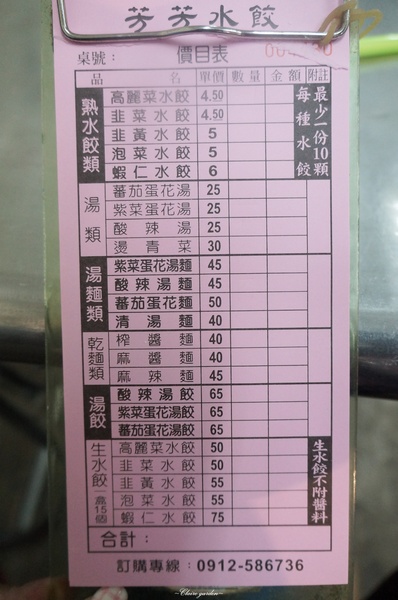 芳芳水餃
桌號： 價目表
品 名 單價 數量 金額 附註
熟水餃類
高麗菜水餃 4.50
韭菜水餃 4.50
韭黃水餃 5
泡菜水餃 5
蝦仁水餃 6
每種水餃最少一份10顆
湯類
蕃茄蛋花湯 25
紫菜蛋花湯 25
酸辣湯 25
燙青菜 30
湯麵類
紫菜蛋花湯麵 45
酸辣湯麵 45
蕃茄蛋花麵 50
清湯麵 40
乾麵類
榨醬麵 40
麻醬麵 40
麻辣麵 45
湯餃
酸辣湯餃 65
紫菜蛋花湯餃 65
蕃茄蛋花湯餃 65
生水餃 盒15個
高麗菜水餃 50
韭菜水餃 50
韭黃水餃 55
泡菜水餃 55
蝦仁水餃 75
生水餃不附醬料
合計：
訂購專線：0912-586736
~Claire garden~